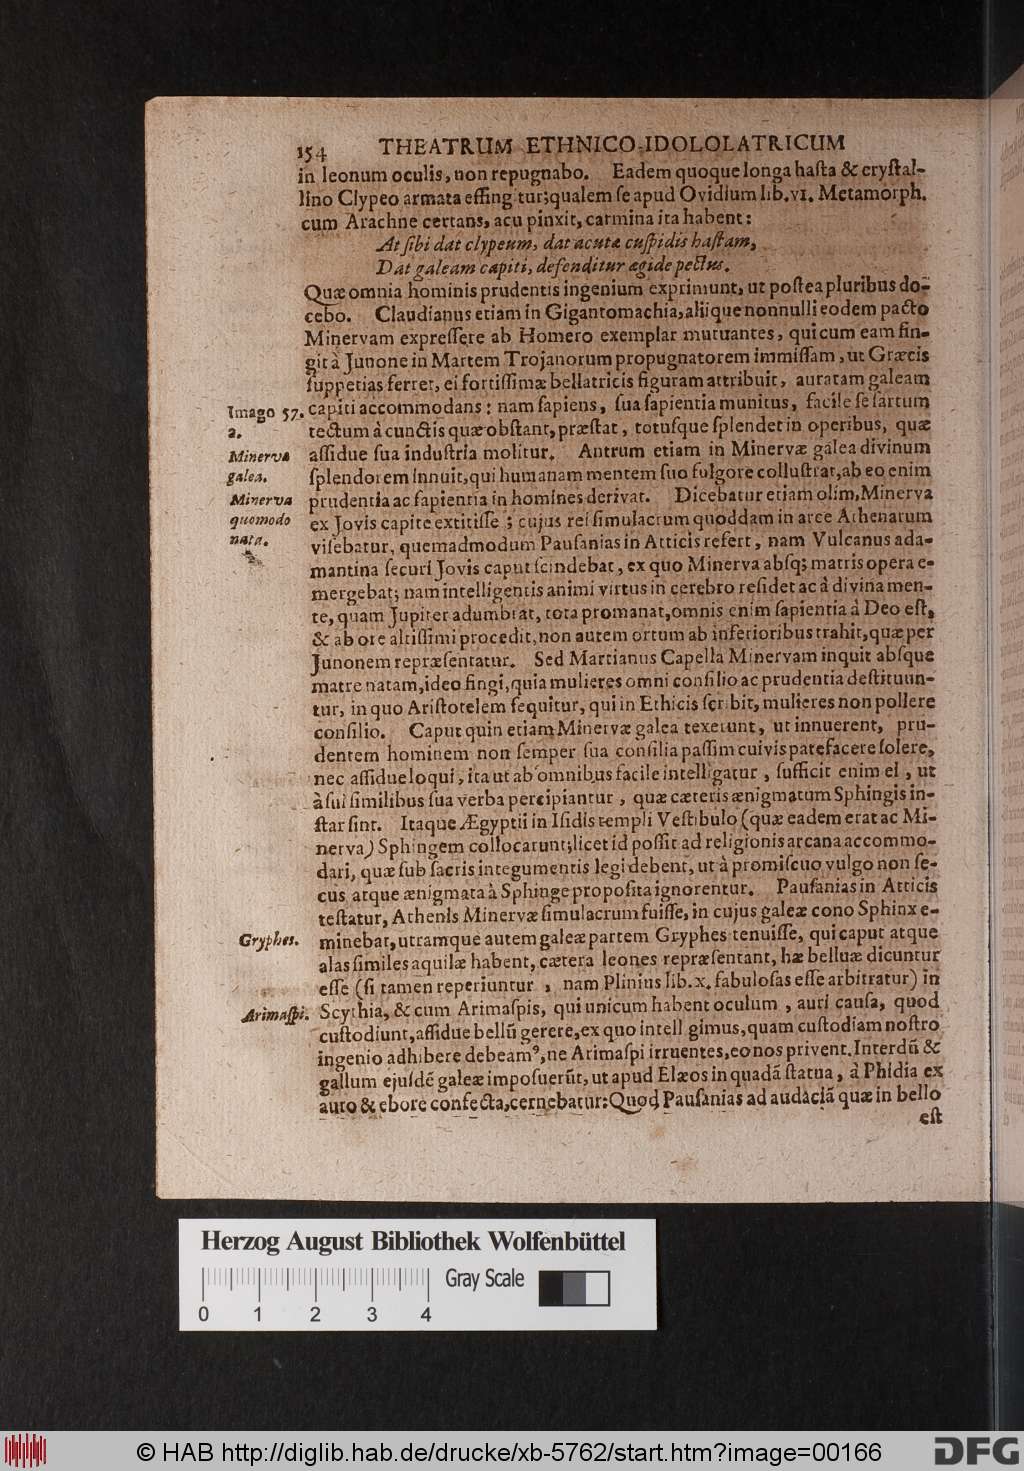 154 THEATRUM ETHNICO-IDOLOLATRICUM
in leonum oculis, non repugnabo. Eadem quoque longa haſta & cryſtal-
lino Clypeo armata effing tur; qualem ſe apud Ovidium lib. vi. Metamorph.
cum Arachne certans, acu pinxit, carmina ita habent:
At ſibi dat clypeum, dat acuta cuſpidis haſtam,
Dat galeam capiti, defenditur ægide pectus.
Quæ omnia hominis prudentis ingenium exprimunt, ut poſtea pluribus do-
cebo. Claudianus etiam in Gigantomachia, aliique nonnulli eodem pacto
Minervam expreſſere ab Homero exemplar mutuantes, qui cum eam fin-
git à Junone in Martem Trojanorum propugnatorem immiſſam, ut Græcis
ſuppetias ferret, ei fortiſſimæ bellatricis figuram attribuit, auratam galeam
Imago 57. capiti accommodans: nam ſapiens, ſua ſapientia munitus, facile ſe ſartum
a. tectum à cunctis quæ obſtant, præſtat, totuſque ſplendet in operibus, quæ
Minerva aſſidue ſua induſtria molitur. Antrum etiam in Minervæ galea divinum
galea. ſplendorem innuit, qui humanam mentem ſuo fulgore colluſtrat, ab eo enim
Minerva prudentia ac ſapientia in homines derivat. Dicebatur etiam olim, Minerva
quomodo ex Jovis capite extitiſſe; cujus rei ſimulacrum quoddam in arce Athenarum
nata. viſebatur, quemadmodum Pauſanias in Atticis refert, nam Vulcanus ada-
mantina ſecuri Jovis caput ſcindebat, ex quo Minerva abſq; matris opera e-
mergebat; nam intelligentis animi virtus in cerebro reſidet ac à divina men-
te, quam Jupiter adumbrat, tota promanat, omnis enim ſapientia à Deo eſt,
& ab ore altiſſimi procedit, non autem ortum ab inferioribus trahit, quæ per
Junonem repræſentatur. Sed Martianus Capella Minervam inquit abſque
matre natam, ideo fingi, quia mulieres omni conſilio ac prudentia deſtituun-
tur, in quo Ariſtotelem ſequitur, qui in Ethicis ſcribit, mulieres non pollere
conſilio. Caput quin etiam Minervæ galea texerunt, ut innuerent, pru-
dentem hominem non ſemper ſua conſilia paſſim cuivis patefacere ſolere,
nec aſſidue loqui, ita ut ab omnibus facile intelligatur, ſufficit enim ei, ut
à ſui ſimilibus ſua verba percipiantur, quæ cæteris ænigmatum Sphingis in-
ſtar ſint. Itaque Ægyptii in Iſidis templi Veſtibulo (quæ eadem erat ac Mi-
nerva) Sphingem collocarunt; licet id poſſit ad religionis arcana accommo-
dari, quæ ſub ſacris integumentis legi debent, ut à promiſcuo vulgo non ſe-
cus atque ænigmata à Sphinge propoſita ignorentur. Pauſanias in Atticis
teſtatur, Athenis Minervæ ſimulacrum fuiſſe, in cujus galeæ cono Sphinx e-
Gryphes. minebat, utramque autem galeæ partem Gryphes tenuiſſe, qui caput atque
alas ſimiles aquilæ habent, cætera leones repræſentant, hæ belluæ dicuntur
eſſe (ſi tamen reperiuntur, nam Plinius lib. x. fabuloſas eſſe arbitratur) in
Arimaſpi. Scythia, & cum Arimaſpis, qui unicum habent oculum, auri cauſa, quod
cuſtodiunt, aſſidue bellũ gerere, ex quo intell gimus, quam cuſtodiam noſtro
ingenio adhibere debeamꝰ, ne Arimaſpi irruentes, eo nos privent. Interdũ &
gallum ejuſdẽ galeæ impoſuerũt, ut apud Elæos in quadã ſtatua, à Phidia ex
auro & ebore confecta, cernebatur: Quod Pauſanias ad audaciã quæ in bello
eſt
Herzog August Bibliothek Wolfenbüttel
Gray Scale
0 1 2 3 4
© HAB http://diglib.hab.de/drucke/xb-5762/start.htm?image=00166
DFG